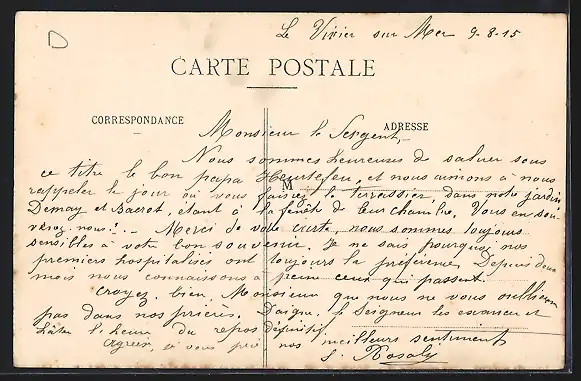 Le Vivier sur Mer 9-8-15
CARTE POSTALE
CORRESPONDANCE
ADRESSE
Monsieur le Sergent,
Nous sommes heureuses de saluer sous
ce titre le bon papa Heurtefeu, et nous aimons à nous
M
rappeler le jour où vous faisiez le terrassier, dans notre jardin
Demay et Bacrot, étant à la fenêtre de leur chambre. Vous en sou-
venez-nous? .. Merci de votre carte, nous sommes toujours
sensibles à votre bon souvenir. Je ne sais pourquoi nos
premiers hospitalisés ont toujours la préférence. Depuis deux
mois nous connaissons à peine ceux qui passent.
Croyez bien, Monsieur que nous ne vous oublions
pas dans nos prières. Daigne le Seigneur les exaucer et
hâter l'heure du repos définitif.
Agréez, nos meilleurs sentiments
S. Rosaly